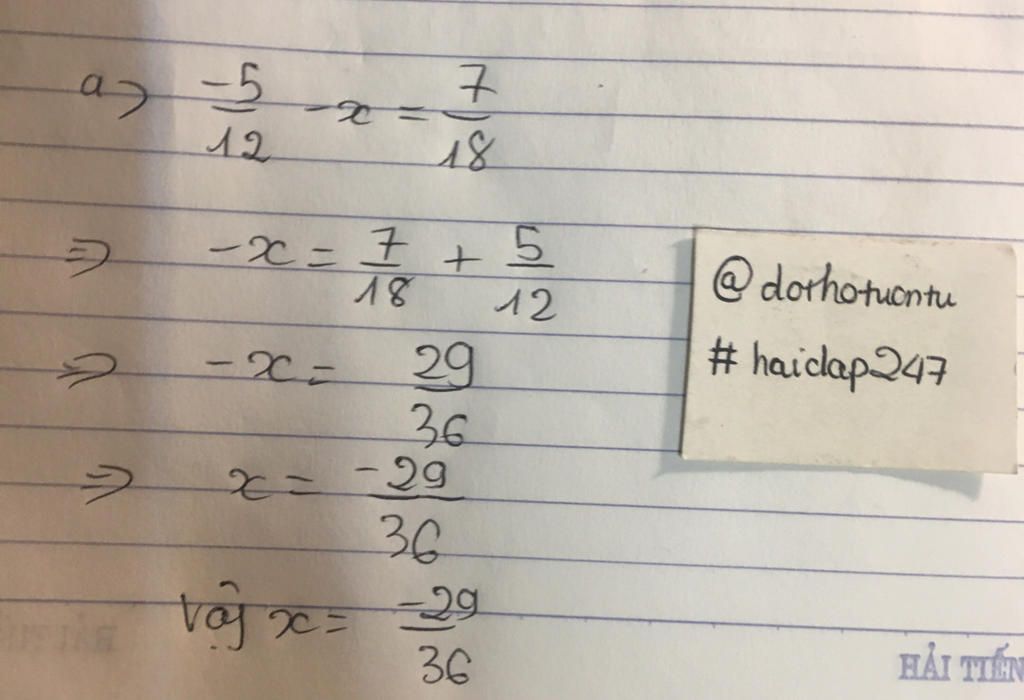 a) -5/12 - x = 7/18
⇒ -x = 7/18 + 5/12
⇒ -x = 29/36
⇒ x = -29/36
Vậy x = -29/36
@dorhotuontu
#haidap247
HẢI TIẾN